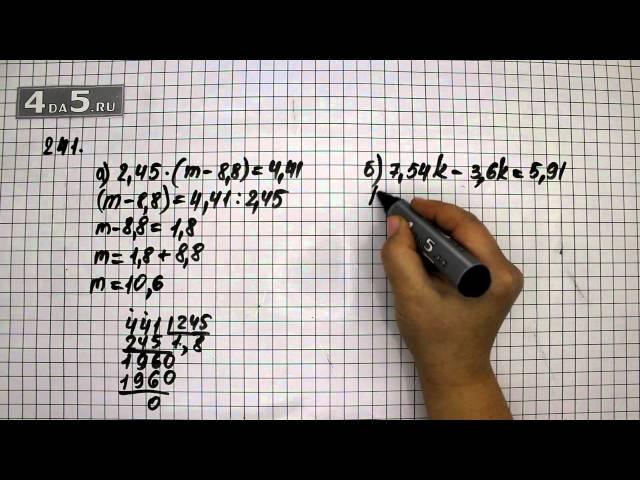 4 ДА 5.RU
241.
а) 2,45 · (m – 8,8) = 4,41
(m – 8,8) = 4,41 : 2,45
m – 8,8 = 1,8
m = 1,8 + 8,8
m = 10,6
441 245
245 1,8
1960
1960
0
б) 7,54k – 3,6k = 5,91